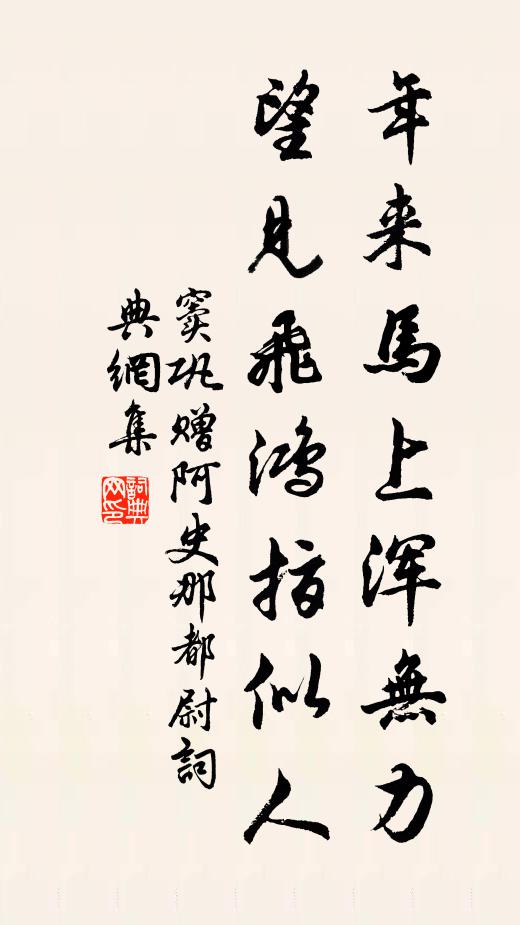 年来馬上浑無力
望見飛鴻指似人
窦巩赠阿史那都尉詞
典網集
詞典网印